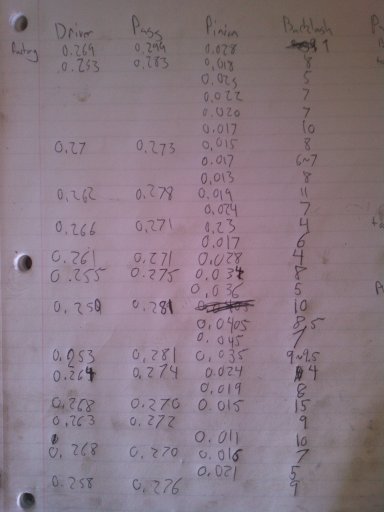 Driver Pass Pinion Backlash
0.269 0.299 0.028 9
0.253 0.283 0.018 8
0.025 5
0.022 7
0.020 7
0.017 10
0.27 0.273 0.015 8
0.017 6~7
0.013 8
0.262 0.278 0.019 11
0.024 7
0.266 0.271 0.23 4
0.017 6
0.261 0.271 0.028 4
0.255 0.275 0.034 8
0.036 5
0.250 0.281 10
0.0405 8.5
0.045 7
0.253 0.281 0.035 9~9.5
0.264 0.274 0.024 4
0.019 8
0.268 0.270 0.015 15
0.263 0.272 9
0.011 10
0.268 0.270 0.016 7
0.021 5
0.258 0.276 9